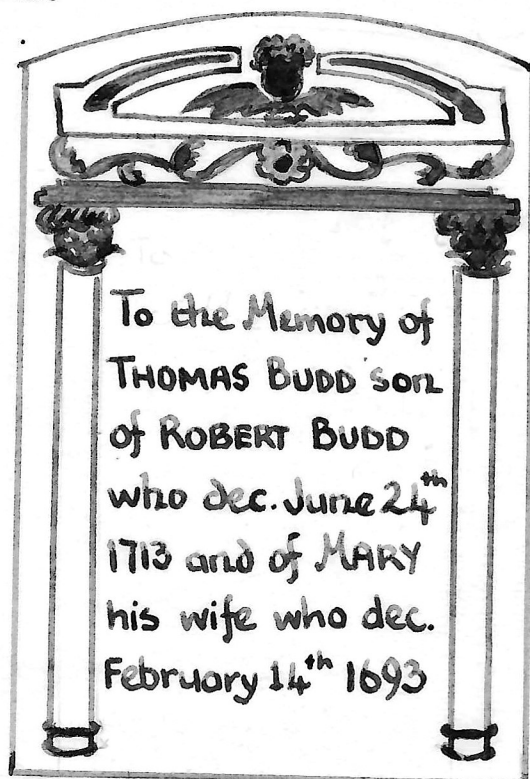 To the Memory of
THOMAS BUDD son
of ROBERT BUDD
who dec. June 24th
1713 and of MARY
his wife who dec.
February 14th 1693